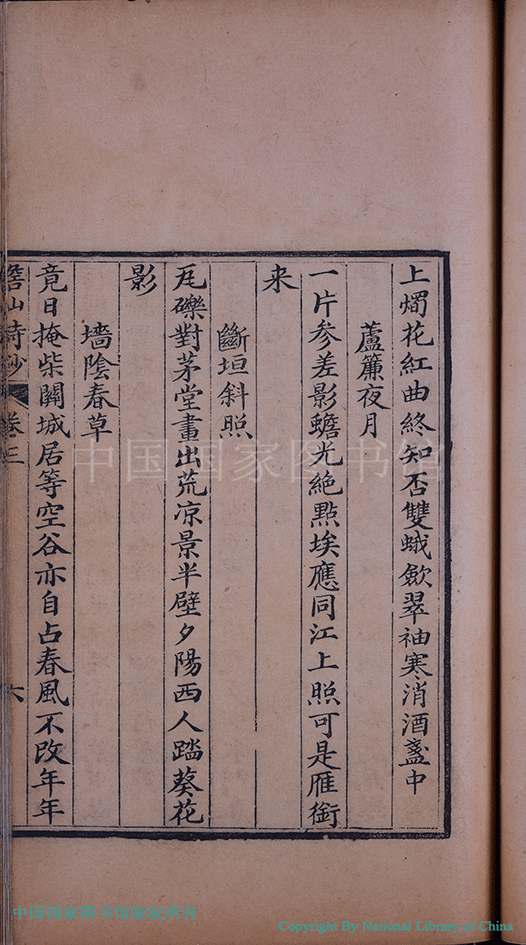 上燭花紅曲終知否雙蛾斂翠袖寒消酒盞中
蘆簾夜月
一片參差影蟾光絶點埃應同江上照可是雁銜
来
斷垣斜照
瓦礫對茅堂畫出荒凉景半壁夕陽西人踏葵花
影
墻陰春草
竟日掩柴關城居等空谷亦自占春風不改年年
山詩鈔 卷三 六
中国国家图书馆
中国国家图书馆版权所有
Copyright By National Library of China